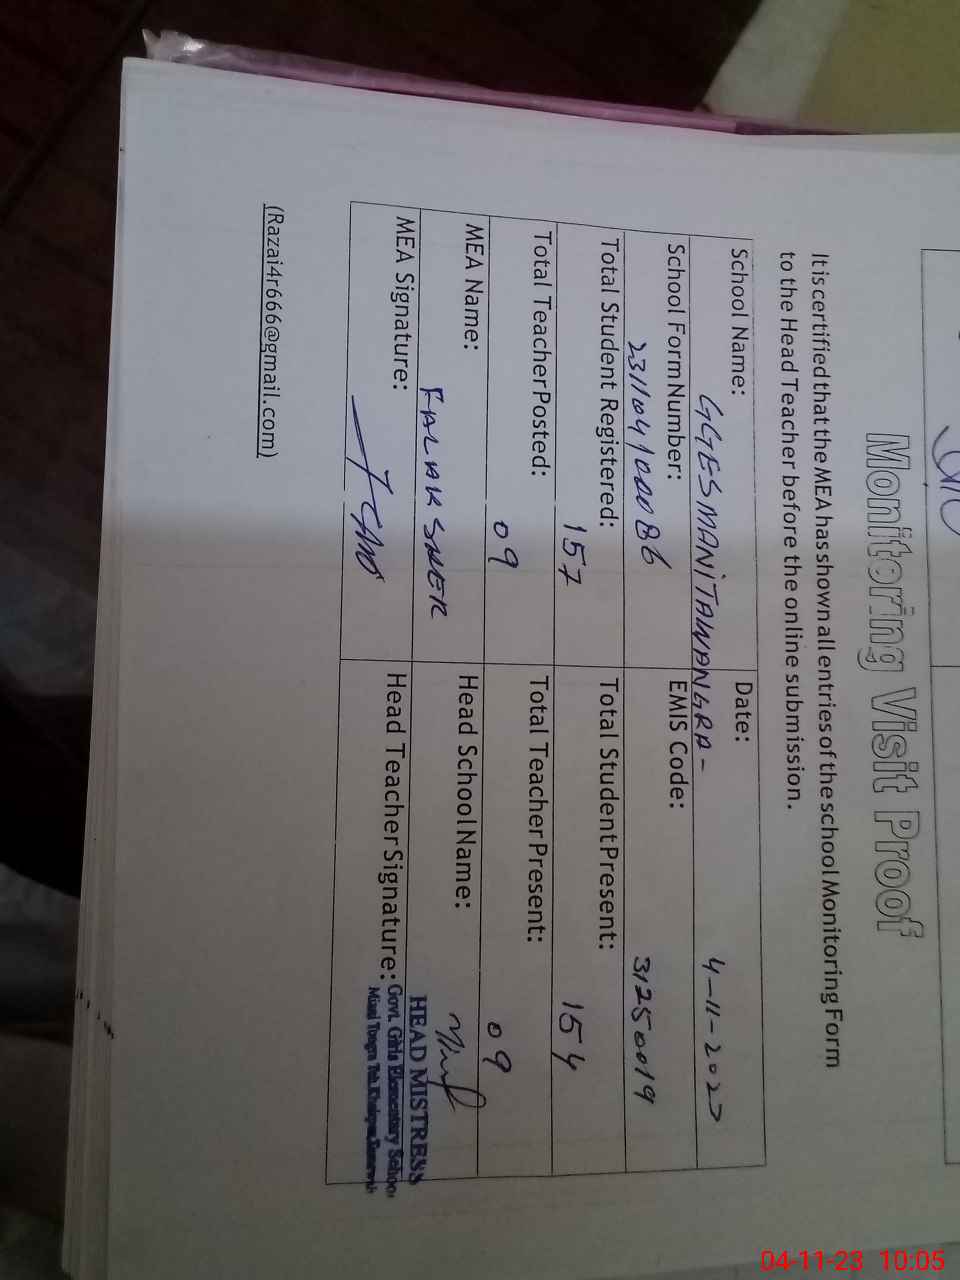 Monitoring Visit Proof
It is certified that the MEA has shown all entries of the school Monitoring Form
to the Head Teacher before the online submission.
School Name: GGES MANi TAWANGRA- Date: 4-11-2023
School Form Number: 2311041000086 EMIS Code: 31250019
Total Student Registered: 157 Total Student Present: 154
Total Teacher Posted: 09 Total Teacher Present: 09
MEA Name: FALAK SHER Head School Name:
MEA Signature: Head Teacher Signature:
HEAD MISTRESS
Govt. Girls Elementary School
(Razai4r666@gmail.com)
04-11-23 10:05